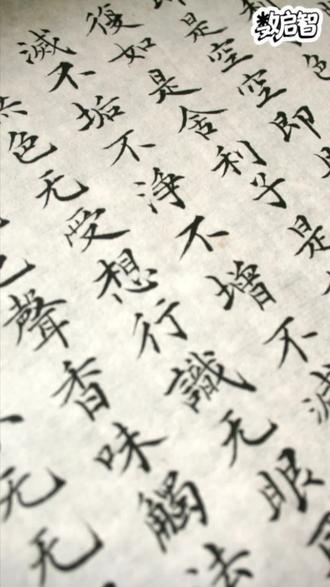 数启智
色
是空空即
後如是舍利子是
滅不垢不淨不增不減
色无受想行識无眼
聲香味觸法
无无